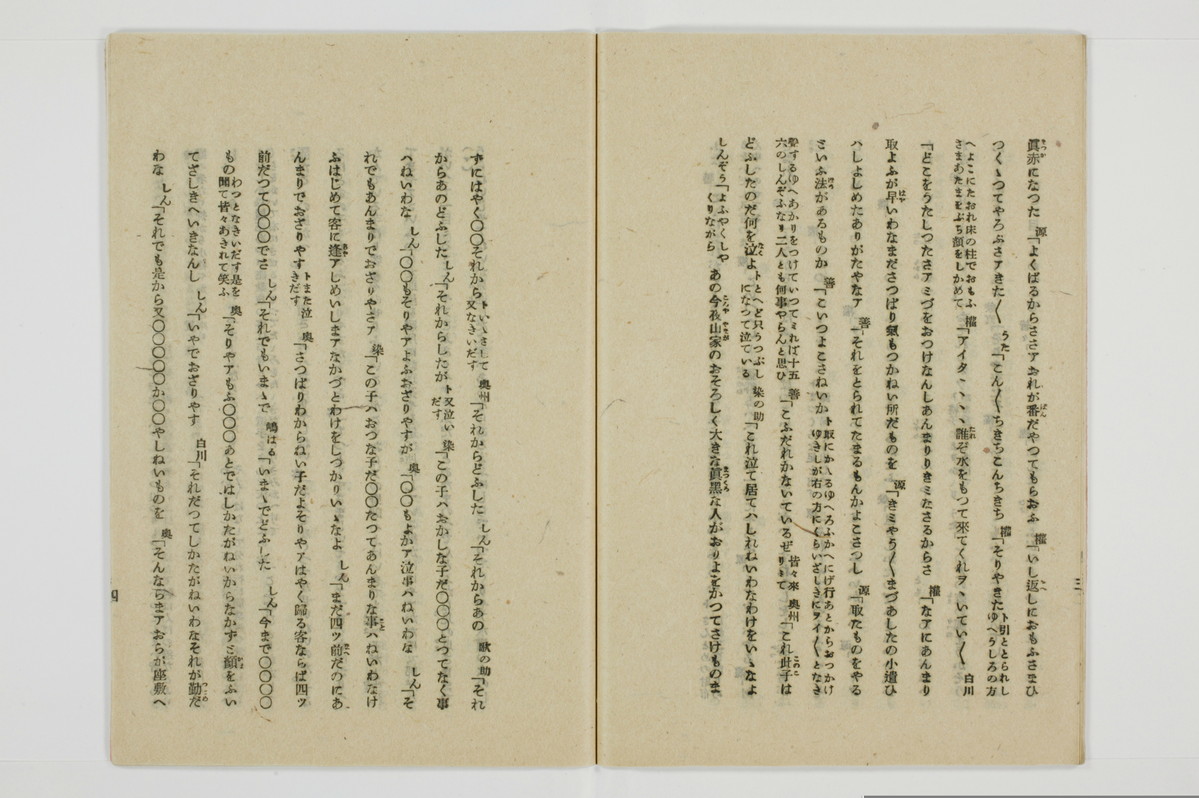 眞赤になつた 源「よくばるからささアおれが番だやつてもらおふ 權「いし返しにおもふさまひ
つくゝつてやろぶさアきた〳〵 うた「こん〳〵ちきちこんちきち 權「そりやきた ト引ととられしゆへうしろの方
へよこにたおれ床の柱でおもふさまあたまをぶち顔をしかめて 權「アイタヽヽヽ誰ぞ水をもつて來てくれヲヽいてい〳〵 白川
「どこをうたしつたさアミづをおつけなんしあんまりりきミたさるからさ 權「なアにあんまり
取よふが早いわなまださつぱり氣もつかねい所だものを 源「きミやう〳〵まづあしたの小遣ひ
ハしよしめたありがたやなア 善「それをとられてたまるもんかよこさつし 源「取たものをやる
といふ法があるものか 善「こいつよこさねいか ト取にかゝるゆへろふかへにげ行あとからおつかけゆきしが右の方にくらいざしきにヲイ〳〵となき
聲するゆへあかりをつけていつてミれば十五六のしんぞふなり二人とも何事やらんと思ひ 善「こふだれかないているぜ 皆々來りて 奥州「これ此子は
どふしたのだ何を泣よ トとへど只うつぶしになつて泣ている 染の助「これ泣て居てハしれねいわなわけをいゝなよ
しんぞう「よふやくしやくりながら あの今夜山家のおそろしく大きな眞黑な人がおりよをかつてさけものま
三
ずにはやく〇〇それから トいゝさして又なきいだす 奥州「それからどふした しん「それからあの 歌の助「それ
からあのどふした しん「それからしたが ト又泣いだす 染「この子ハおかしな子だ〇〇〇とつてなく事
ハねいわな しん「〇〇もそりやアよふおざりやすが 奥「〇〇もよかア泣事ハねいわな しん「そ
れでもあんまりでおざりやさア 染「この子ハおつな子だ〇〇たつてあんまりな事ハねいわなけ
ふはじめて客に逢アしめいしまアなかづとわけをしつかりいゝなよ しん「まだ四ツ前だのにあ
んまりでおざりやす トまた泣きだす 奥「さつぱりわからねい子だよそりやアはやく歸る客ならば四ツ
前だつて〇〇〇でさ しん「それでもいまゝで 鳴はる「いまゝでどふした しん「今まで〇〇〇〇
もの わつとなきいだす是を聞て皆々あきれて笑ふ 奥「そりやアもふ〇〇〇あとではしかたがねいからなかずと顔をふい
てざしきへいきなんし しん「いやでおざりやす 白川「それだつてしかたがねいわなそれが勤だ
わな しん「それでも是から又〇〇〇〇か〇〇やしねいものを 奥「そんならまアおらが座敷へ
四